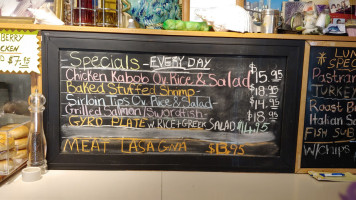 BERRY
CKEN
$7.95
-Specials- EVERY DAY
Chicken Kabob Ov. Rice & Salad $15.95
Baked Stuffed Shrimp- $18.95
Sirloin Tips Ov. Rice & Salad- $14.95
Grilled Salmon/Swordfish- $18.95
GYRO PLATE w RICE + GREEK SALAD $14.95
MEAT LASAGNA $13.95
LUN
Pastra
TURKEY
Roast B
Italian Sa
FISH SUB
w/Chips